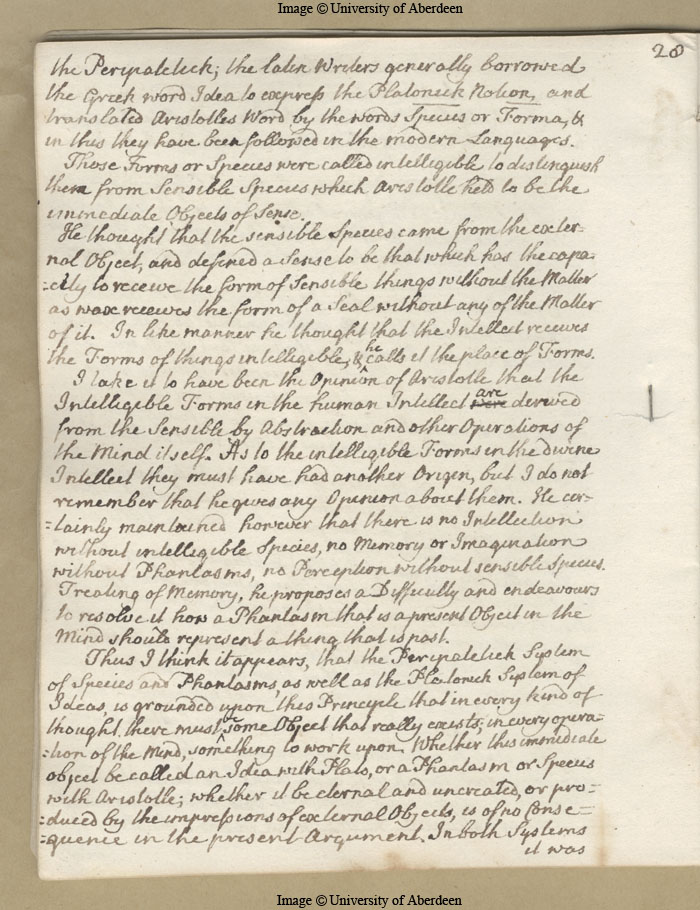 Image © University of Aberdeen
28
the Peripatetick; the latin Writers generally borrowed
the Greek word Idea to express the Platonick Notion, and
translated Aristotles Word by the words Species or Forma, &
in this they have been followed in the modern Languages.
Those Forms or Species were called intelligible to distinguish
them from Sensible Species which Aristotle held to be the
immediate Objects of Sense.
He thought that the sensible Species came from the exter-
nal Object, and defined a Sense to be that which has the capa-
:city to receive the form of Sensible things without the Matter
as wax receives the form of a Seal without any of the Matter
of it. In like manner he thought that the Intellect receives
the Forms of things intelligible, & he calls it the place of Forms.
I take it to have been the Opinion of Aristotle that the
Intelligible Forms in the human Intellect were are derived
from the Sensible by Abstraction and other Operations of
the Mind itself. As to the intelligible Forms in the divine
Intellect they must have had another Origin, but I do not
remember that he gives any Opinion about them. He cer-
:tainly maintained however that there is no Intellection
without intelligible Species, no Memory or Imagination
without Phantasms, no Perception without sensible Species.
Treating of Memory, he proposes a Difficulty and endeavours
to resolve it how a Phantasm that is a present Object in the
Mind should represent a thing that is past.
Thus I think it appears, that the Peripatetick System
of Species and Phantasms, as well as the Platonick System of
Ideas, is grounded upon this Principle that in every kind of
thought there must be some Object that really exists; in every opera-
:tion of the Mind, something to work upon. Whether this immediate
object be called an Idea with Plato, or a Phantasm or Species
with Aristotle; whether it be eternal and uncreated, or pro=
:duced by the impressions of external Objects, is of no Conse=
=quence in the present Argument. In both Systems
it was
Image © University of Aberdeen